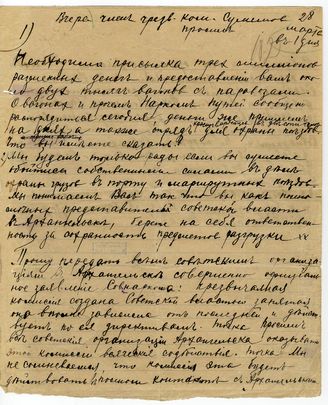 Вчера член чрезв. ком. Сулимов 28
просит
марта
в 1 дня
1)
Необходима присылка трех миллионов
разменных денег и предоставлении вам около
двух тысяч вагонов с паровозами.
О вагонах я просил Наркома путей сообщен
распорядится сегодня, деньги
на днях а также отряд для охраны поездов
что вы можете сказать?
Мы будем только рады если вы сумеете
обойтись собственными силами в деле
охраны грузов в порту и маршрутных поездов.
Мы понимаем Вас так что вы как полно
мочные представители советской власти
в Архангельске, берете на себя ответствен
ность за сохранность предметов разгрузки
Прошу передать всем советским организа
циям в Архангельске совершенно официаль
ное заявление Совнаркома: чрезвычайная
комиссия создана Советской властью
она вполне зависима от последней и действ
вует по ее директивам. точка просим
вас советские организации Архангельска оказывать
этой комиссии всяческое содействие. точка Мы
не сомневаемся, что комиссия эта будет
действовать в полном контакте с Архангельским